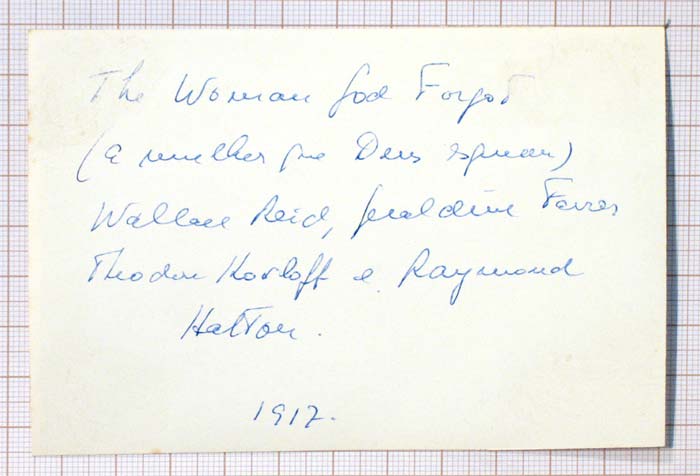 The Woman God Forgot
(a mulher que Deus esqueceu)
Wallace Reid, Geraldine Farrar
Theodore Kosloff e Raymond
Hatton.
1917.